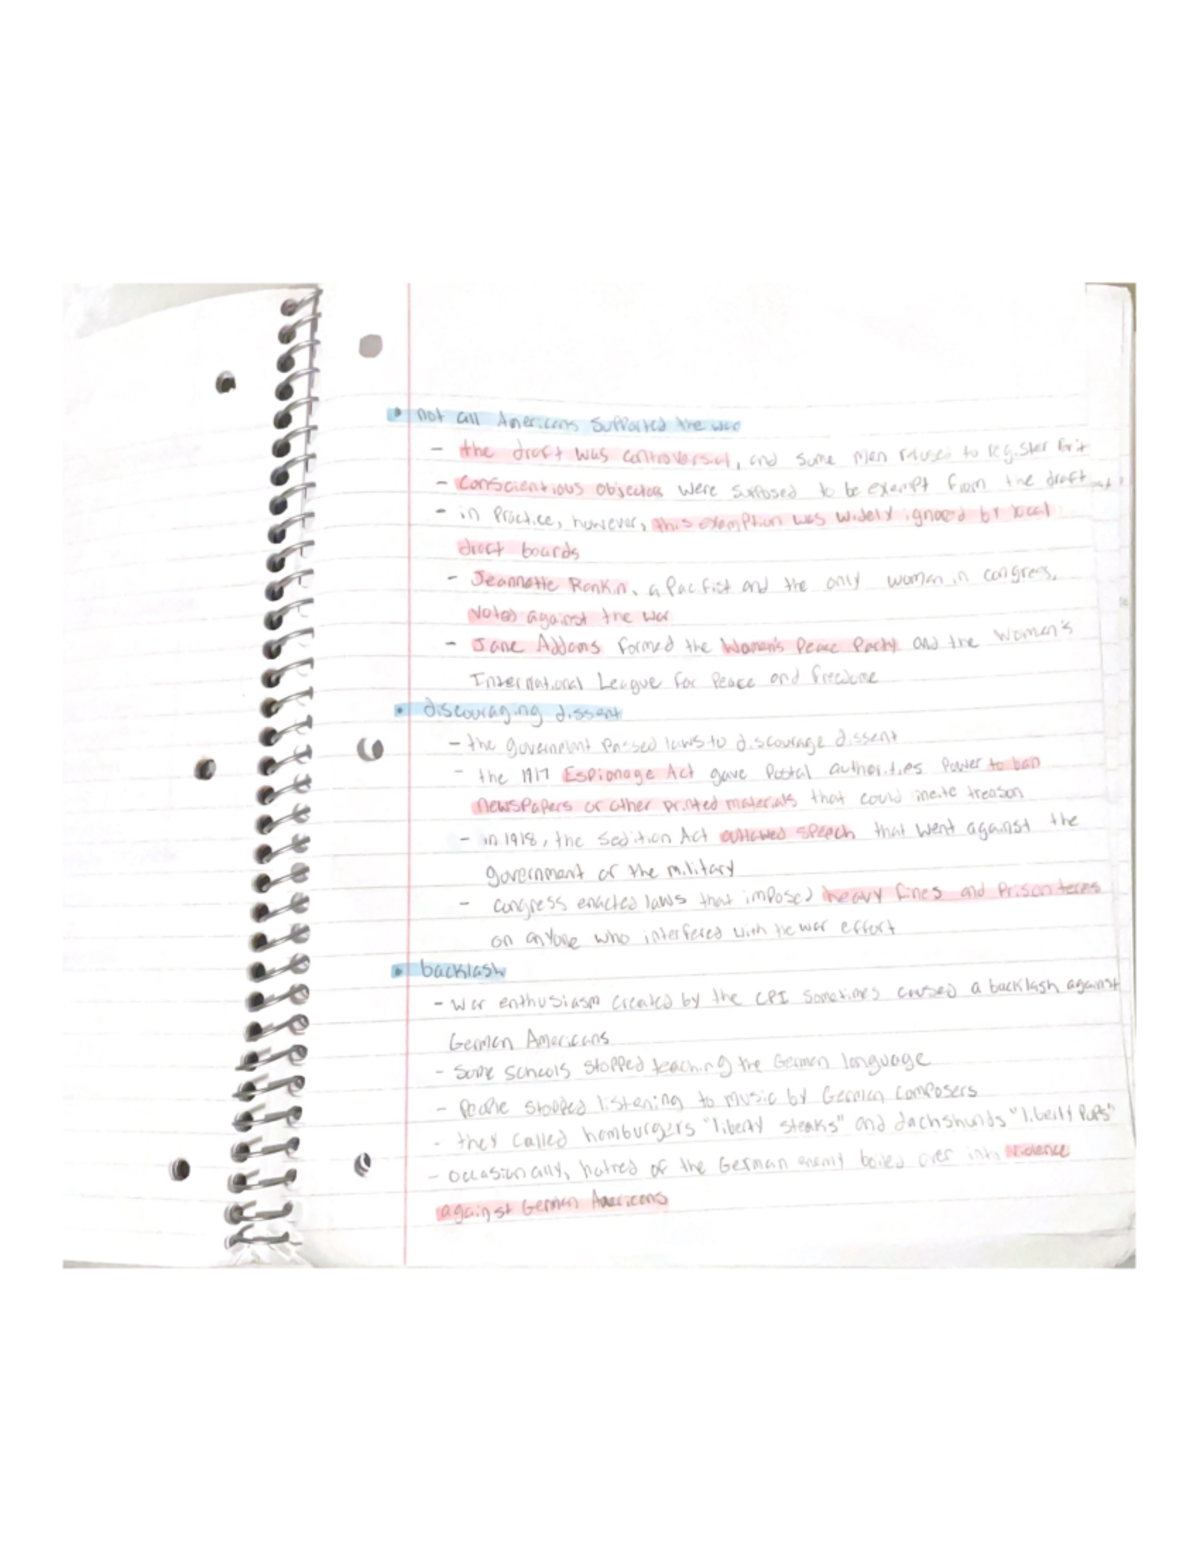 • not all Americans supported the war
- the draft was controversial, and some men refused to register for it
- Conscientious objectors were supposed to be exempt from the draft
- in practice, however, this exemption was widely ignored by local
draft boards
- Jeannette Rankin, a pacifist and the only woman in congress,
voted against the war
- Jane Addams formed the Women's Peace Party and the Women's
International League for Peace and Freedom
• discouraging dissent
- the government passed laws to discourage dissent
- the 1917 Espionage Act gave postal authorities power to ban
newspapers or other printed materials that could incite treason
- in 1918, the Sedition Act outlawed speech that went against the
government or the military
- congress enacted laws that imposed heavy fines and prison terms
on anyone who interfered with the war effort
• backlash
- war enthusiasm created by the CPI sometimes caused a backlash against
German Americans
- some schools stopped teaching the German language
- people stopped listening to music by German composers
- they called hamburgers "liberty steaks" and dachshunds "liberty pups"
- occasionally, hatred of the German enemy boiled over into violence
against German Americans